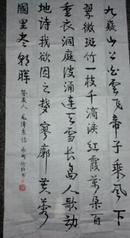 九嶷山上白雲飛帝子乘風下
翠微斑竹一枝千滴淚紅霞萬朵百
重衣洞庭波涌連天雪長島人歌動
地詩我欲因之夢寥廓芙蓉
國里盡朝暉
答友人毛澤東詩